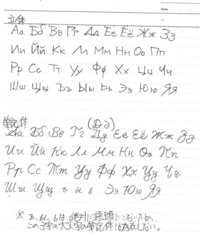 立体
Аа Бб Вв Гг Дд Ее Ёё Жж Зз
Ии Йй Кк Лл Мм Нн Оо Пп
Рр Сс Тт Уу Фф Хх Цц Чч
Шш Щщ Ъъ Ыы Ьь Ээ Юю Яя
筆記体
Аа Бб Вв Гг Дд Ее Ёё Жж Зз
Ии Йй Кк Лл Мм Нн Оо Пп
Рр Сс Тт Уу Фф Хх Цц Чч
Шш Щщ ъ ы ь Ээ Юю Яя
※ ъ, ы, ьは絶対に語頭に
この3字の大文字の筆記体は存在しない。